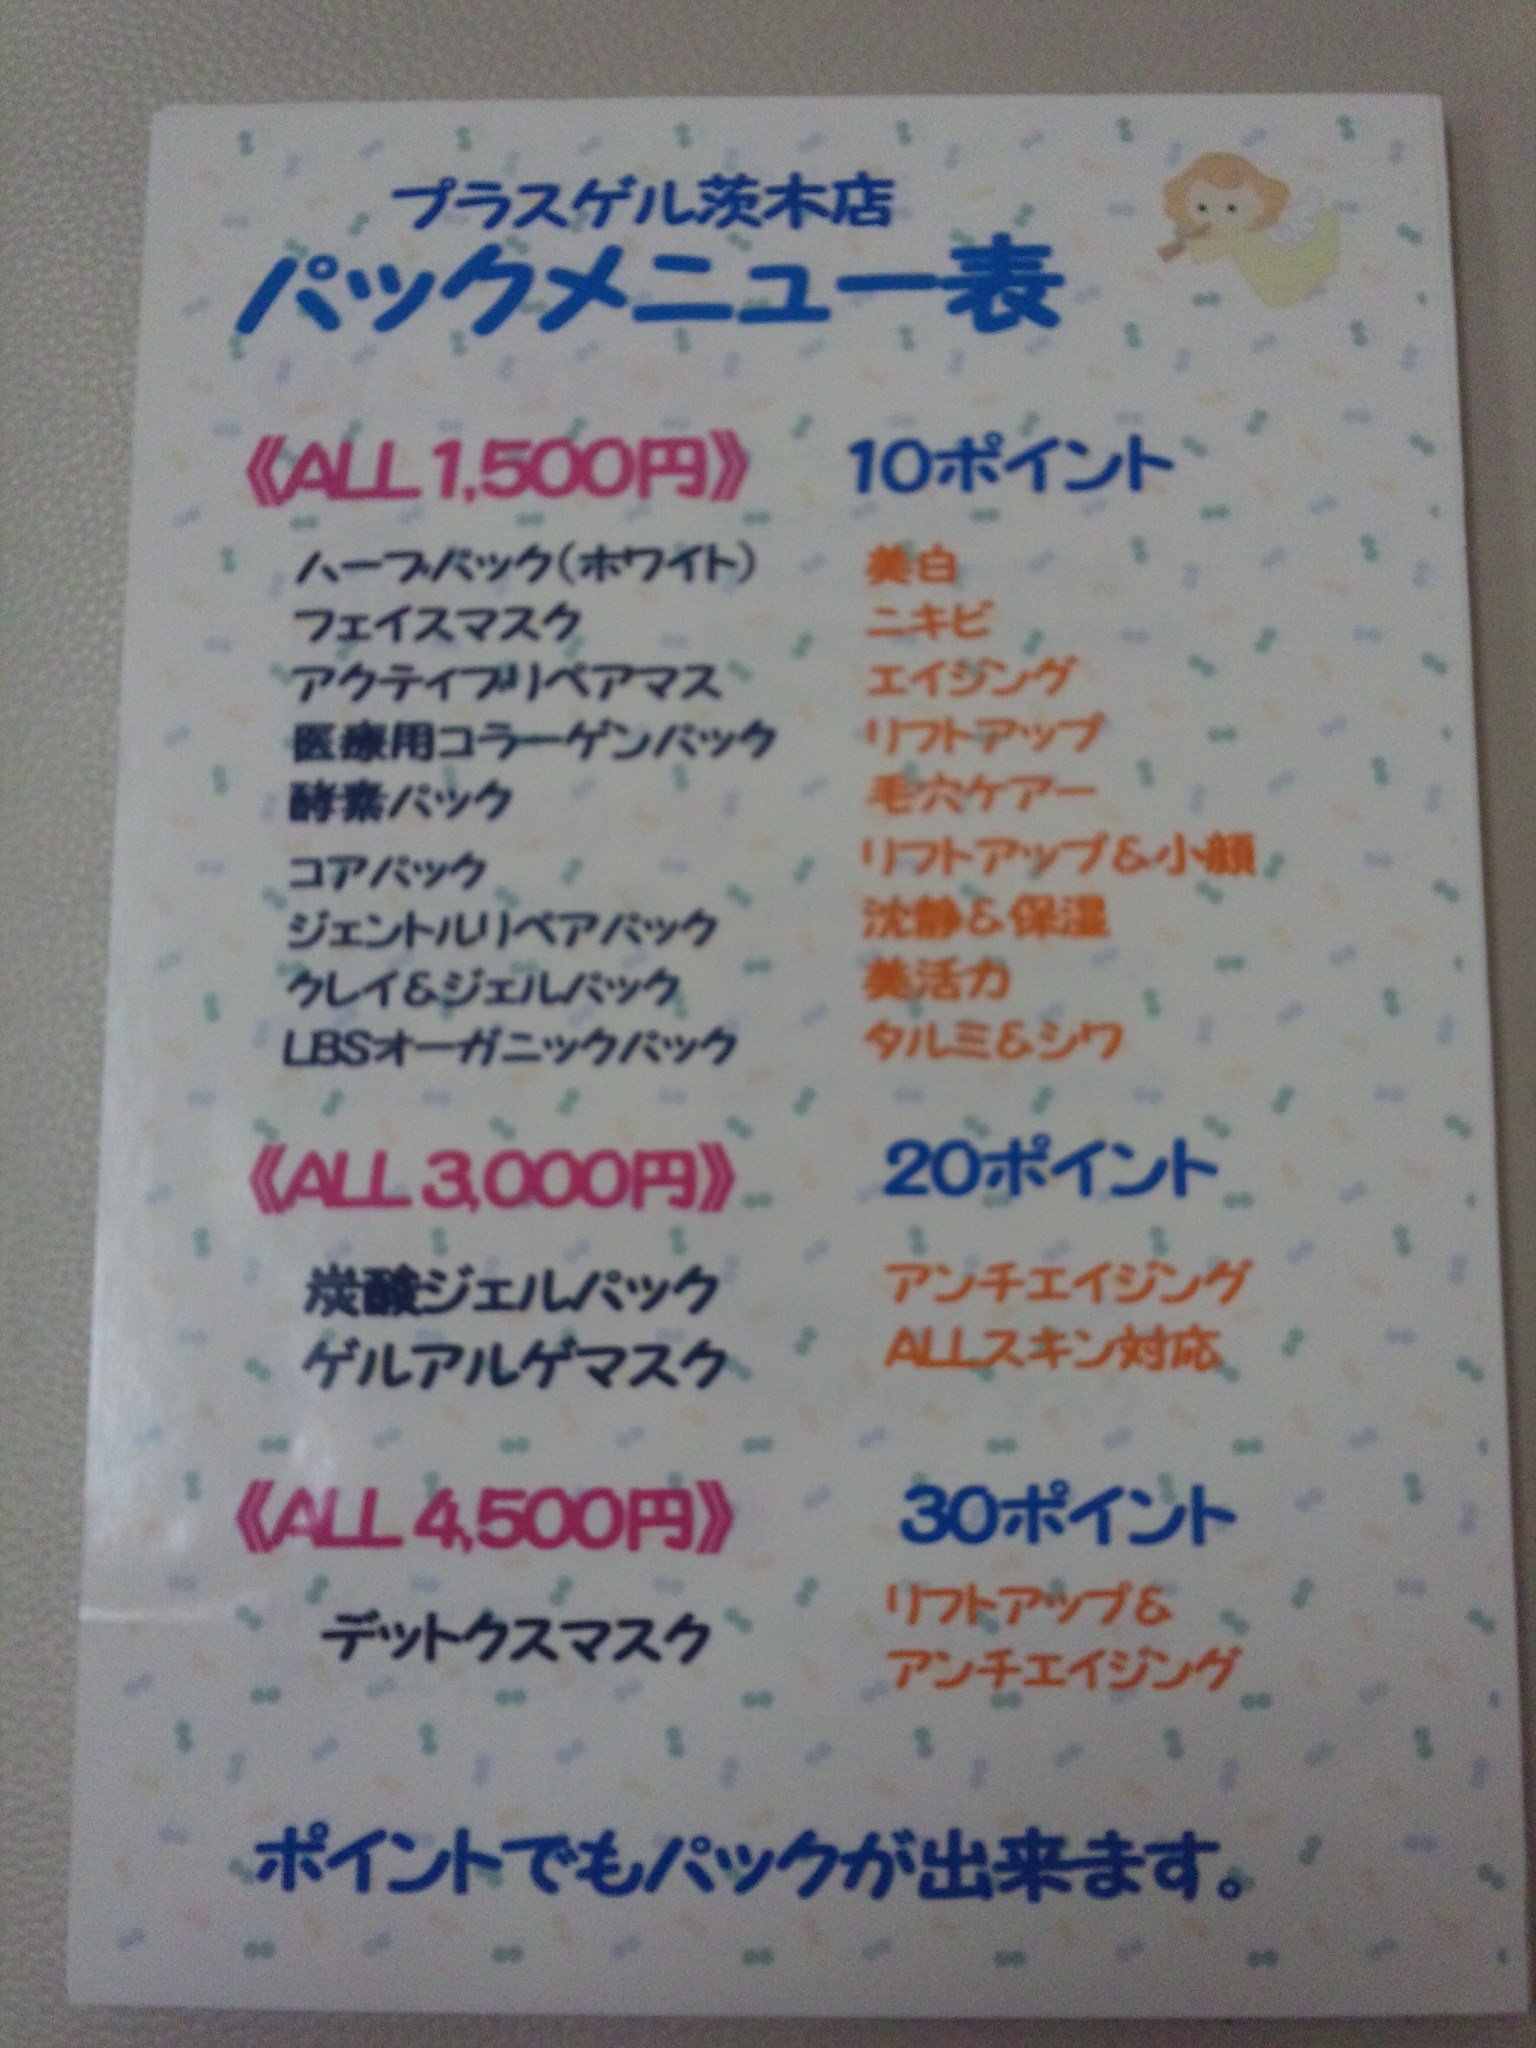 プラスゲル茨木店
パックメニュー表
《ALL 1,500円》 10ポイント
ハーブパック(ホワイト) 美白
フェイスマスク ニキビ
アクティブリペアマス エイジング
医療用コラーゲンパック リフトアップ
酵素パック 毛穴ケアー
コアパック リフトアップ&小顔
ジェントルリペアパック 沈静&保湿
クレイ&ジェルパック 美活力
LBSオーガニックパック タルミ&シワ
《ALL 3,000円》 20ポイント
炭酸ジェルパック アンチエイジング
ゲルアルゲマスク ALLスキン対応
《ALL 4,500円》 30ポイント
デットクスマスク リフトアップ&
アンチエイジング
ポイントでもパックが出来ます。